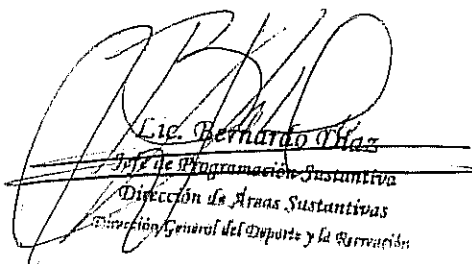 Lic. Bernardo Díaz
Jefe de Programación Sustantiva
Dirección de Áreas Sustantivas
Dirección General del Deporte y la Recreación